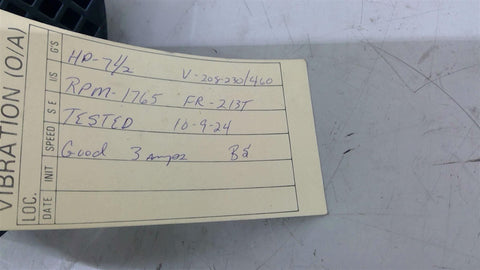 VIBRATION (O/A)
LOC.
DATE INIT SPEED S E IIS G'S
HP-7 1/2 V-208-230/460
RPM-1765 FR-213T
TESTED 10-9-24
Good 3 amps